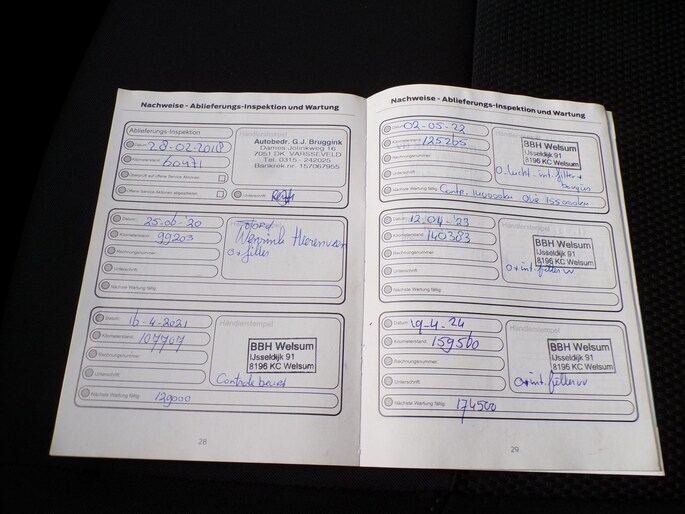 Nachweise - Ablieferungs-Inspektion und Wartung
Ablieferungs-Inspektion
Händlerstempel
Datum 28-02-2018
Kilometerstand 60471
Geprüft auf offene Service-Aktionen
Offene Service-Aktionen abgearbeitet
Unterschrift
Autobedr. G.J. Bruggink
7051 DK VARSSEVELD
Tel. 0315 - 242025
Bankrek.nr. 157067955
Datum 25-06-'20
Kilometerstand 99203
Rechnungsnummer
Unterschrift
Nächste Wartung fällig
filter
Datum 16-4-2021
Kilometerstand 107707
Rechnungsnummer
Unterschrift
Nächste Wartung fällig 129000
Händlerstempel
BBH Welsum
IJsseldijk 91
8196 KC Welsum
Controle beurt
28
Nachweise - Ablieferungs-Inspektion und Wartung
Datum 02-05-22
125265
Rechnungsnummer
Unterschrift
Nächste Wartung fällig Contr. 140000km
BBH Welsum
IJsseldijk 91
8196 KC Welsum
O-lucht-int.filter+
bougies
Datum 12-04-'23
Kilometerstand 140383
Rechnungsnummer
Unterschrift
Nächste Wartung fällig
BBH Welsum
IJsseldijk 91
8196 KC Welsum
O+int.filter vv
Datum 19-4-24
Kilometerstand 159560
Rechnungsnummer
Unterschrift
Nächste Wartung fällig 174500
Händlerstempel
BBH Welsum
IJsseldijk 91
8196 KC Welsum
O+int.filter vv
29